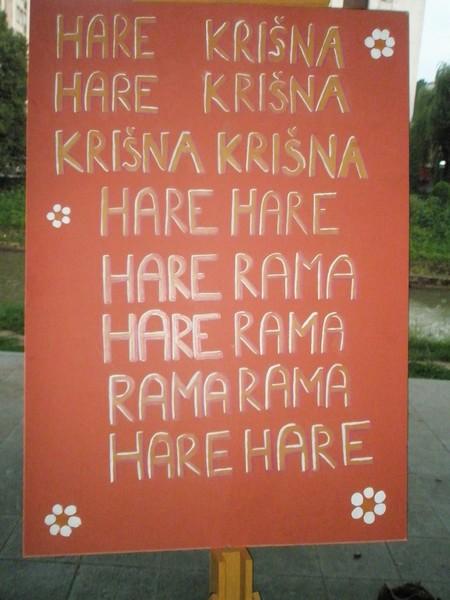 HARE KRIŠNA
HARE KRIŠNA
KRIŠNA KRIŠNA
HARE HARE
HARE RAMA
HARE RAMA
RAMA RAMA
HARE HARE